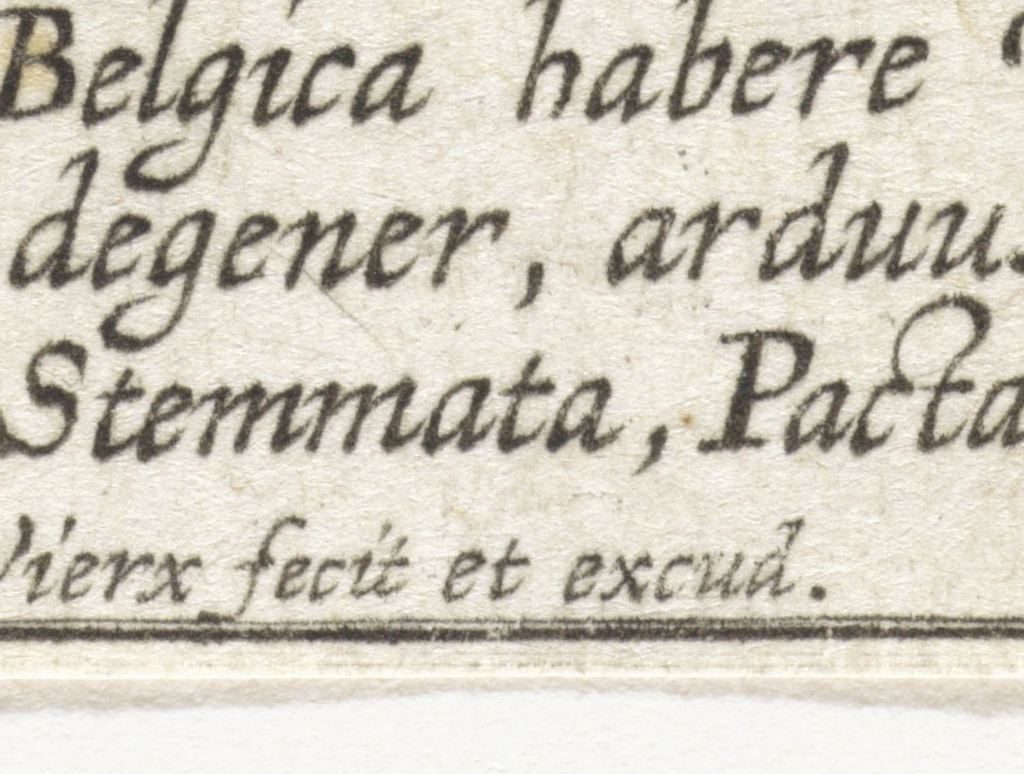 Belgica habere
degener, arduus
Stemmata, Pacta
Vierx fecit et excud.